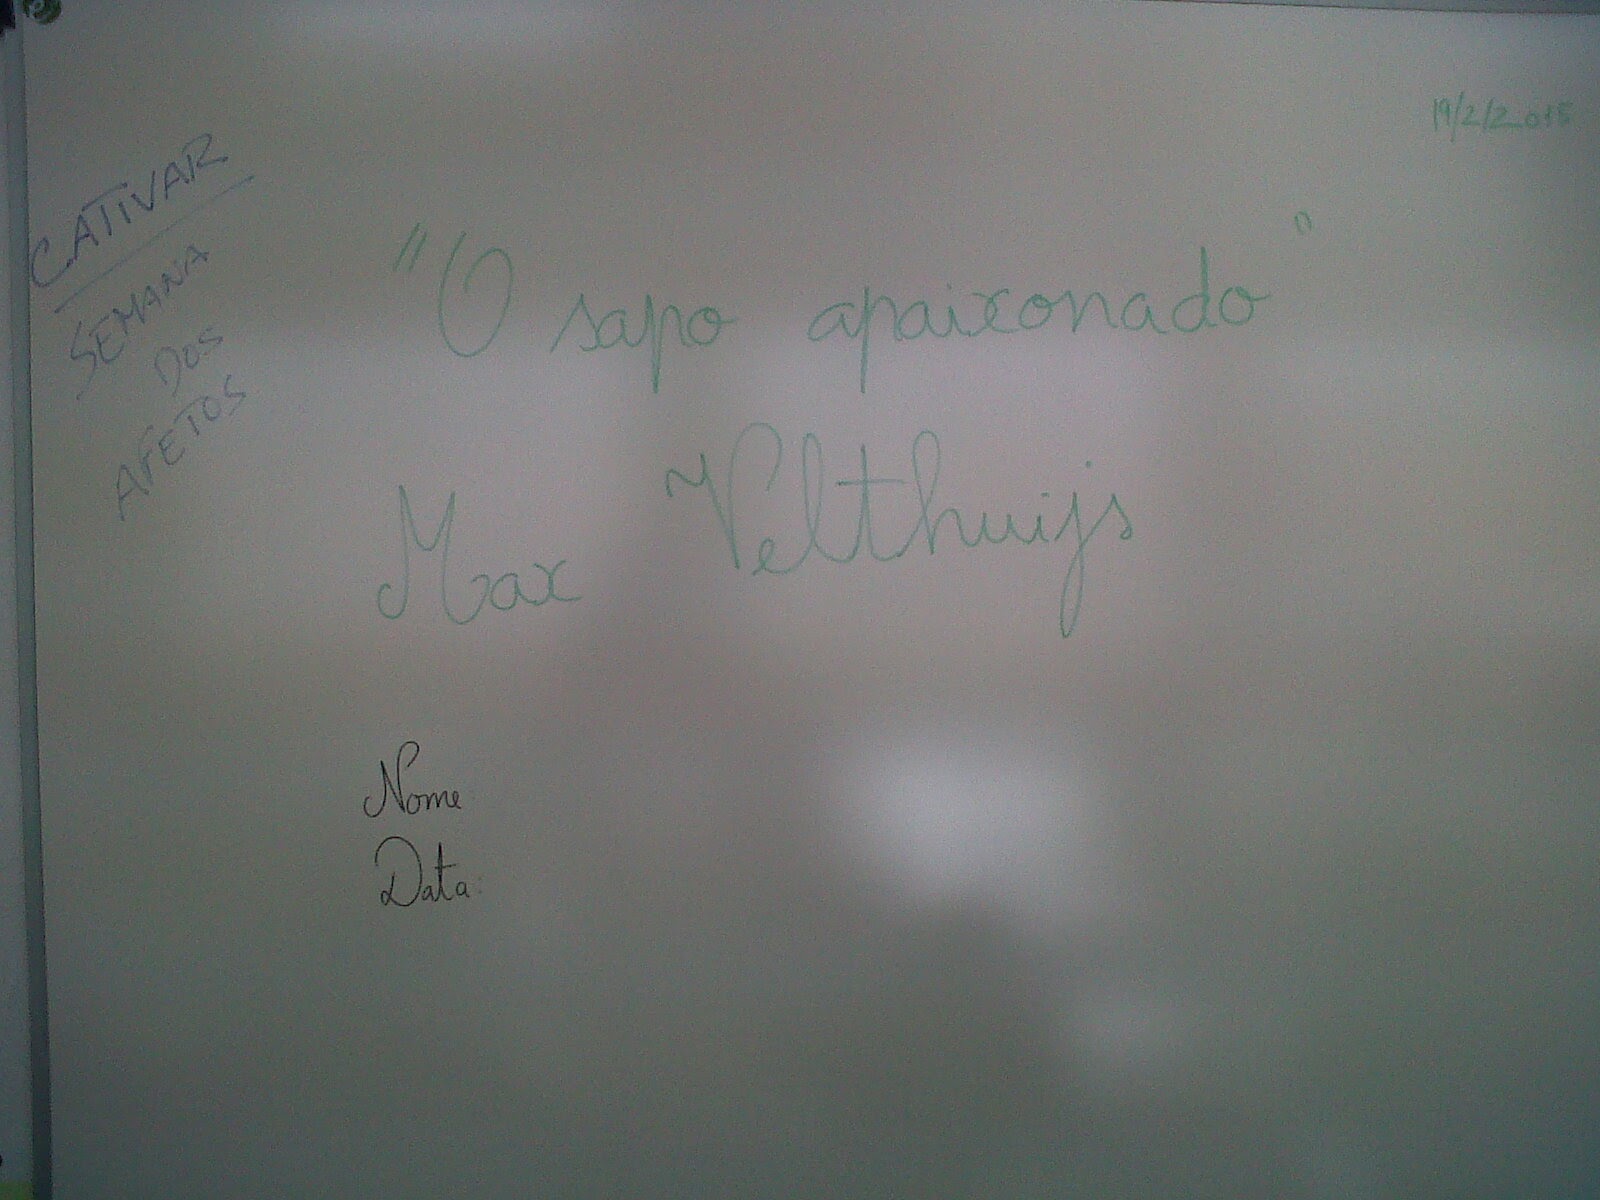 19/2/2015
CATIVAR
SEMANA
DOS
AFETOS
"O sapo apaixonado"
Max Velthuijs
Nome
Data: